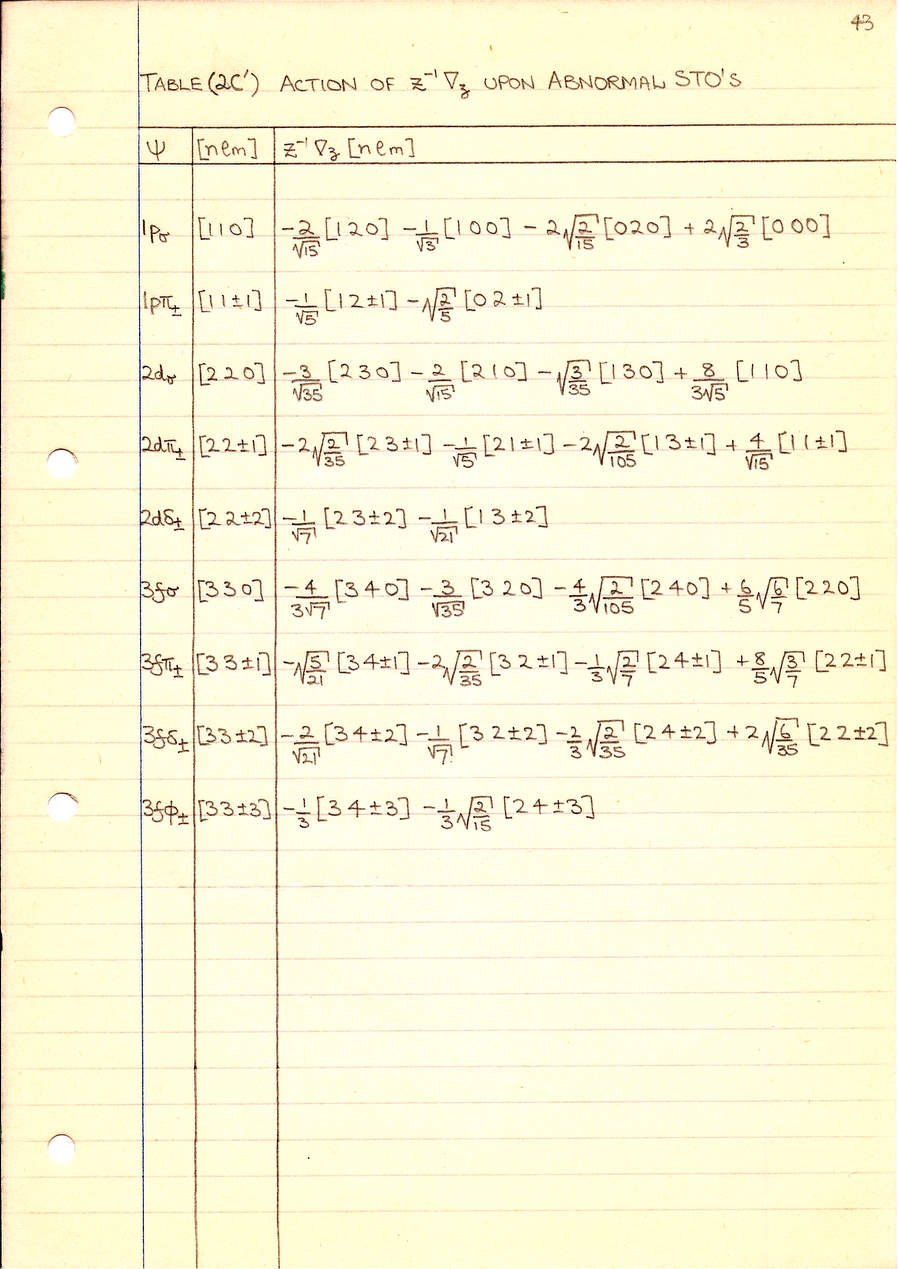 43
TABLE (2C′) ACTION OF Z⁻¹∇𝓏 UPON ABNORMAL STO'S
ψ [nℓm] Z⁻¹∇𝓏[nℓm]
1pσ [110] −2/√15 [120] −1/√3 [100] − 2√(2/15) [020] + 2√(2/3) [000]
1pπ± [11±1] −1/√5 [12±1] −√(2/5) [02±1]
2dσ [220] −3/√35 [230] − 2/√15 [210] − √(3/35) [130] + 8/3√5 [110]
2dπ± [22±1] −2√(2/35) [23±1] −1/√5 [21±1] −2√(2/105) [13±1] + 4/√15 [11±1]
2dδ± [22±2] −1/√7 [23±2] −1/√21 [13±2]
3fσ [330] −4/3√7 [340] −3/√35 [320] −4/3√(2/105) [240] + 6/5√(6/7) [220]
3fπ± [33±1] −√(5/21) [34±1] −2√(2/35) [32±1] −1/3√(2/7) [24±1] + 8/5√(3/7) [22±1]
3fδ± [33±2] −2/√21 [34±2] −1/√7 [32±2] −2/3√(2/35) [24±2] + 2√(6/35) [22±2]
3fφ± [33±3] −1/3 [34±3] −1/3√(2/15) [24±3]